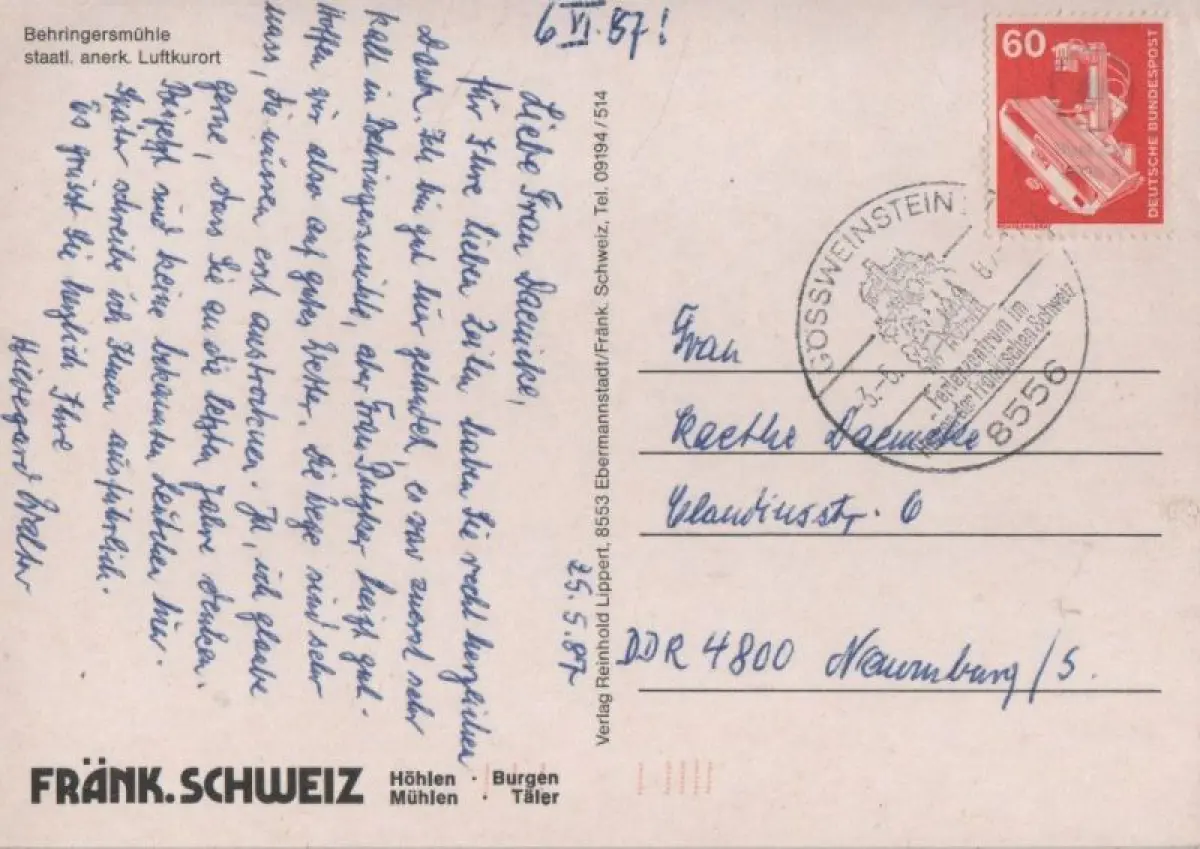 Behringersmühle
staatl. anerk. Luftkurort
6 VI. 87!
25.5.87
Liebe Frau Daemicke,
für Ihre lieben Zeilen haben Sie recht herzlichen
Dank. Ich bin gut hier gelandet, es war zuerst sehr
kalt in Behringersmühle, aber Frau heizt gut.
Hoffen wir also auf gutes Wetter. Die Wege sind sehr
nass, die müssen erst austrocknen. Ja, ich glaube
gerne, dass Sie an die letzten Jahre denken.
Bis jetzt sind keine bekannten Leutchen hier.
Später schreibe ich Ihnen ausführlich.
Es grüsst Sie herzlich Ihre
Hildegard Walter
Verlag Reinhold Lippert, 8553 Ebermannstadt/Fränk. Schweiz, Tel. 09194/514
60
DEUTSCHE BUNDESPOST
GÖSSWEINSTEIN
-3.-6.
87
Ferienzentrum im
Herzen der Fränkischen Schweiz
8556
Frau
Kaethe Daemicke
Claudiusstr. 6
DDR 4800 Naumburg/S.
FRÄNK. SCHWEIZ
Höhlen · Burgen
Mühlen · Täler